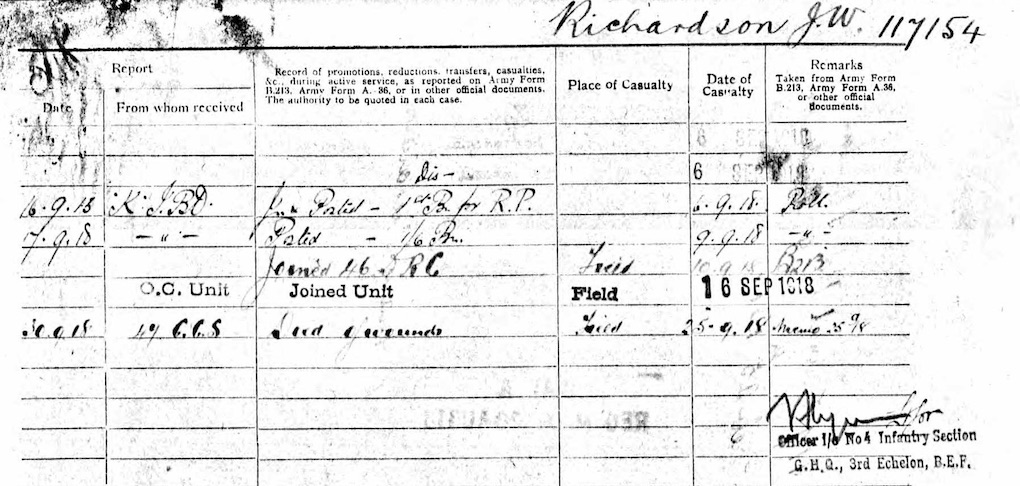 Richardson J.W. 117154
Report
Date
From whom received
Record of promotions, reductions, transfers, casualties,
&c., during active service, as reported on Army Form
B.213, Army Form A. 36, or in other official documents.
The authority to be quoted in each case.
Place of Casualty
Date of
Casualty
Remarks
Taken from Army Form
B.213, Army Form A.36,
or other official
documents.
Dis- 6 SEP
16.9.18 "K" I.B.D. Posted - 1st Bn for R.P. 6.9.18 Roll
7.9.18 -"- Posted - 1/6 Bn. 9.9.18 -"-
Joined 46 D R C Field B213
O.C. Unit Joined Unit Field 16 SEP 1918
9.18 C.C.S Died of wounds Field 25.9.18 Memo
for
Officer i/c No 4 Infantry Section
G.H.Q., 3rd Echelon, B.E.F.